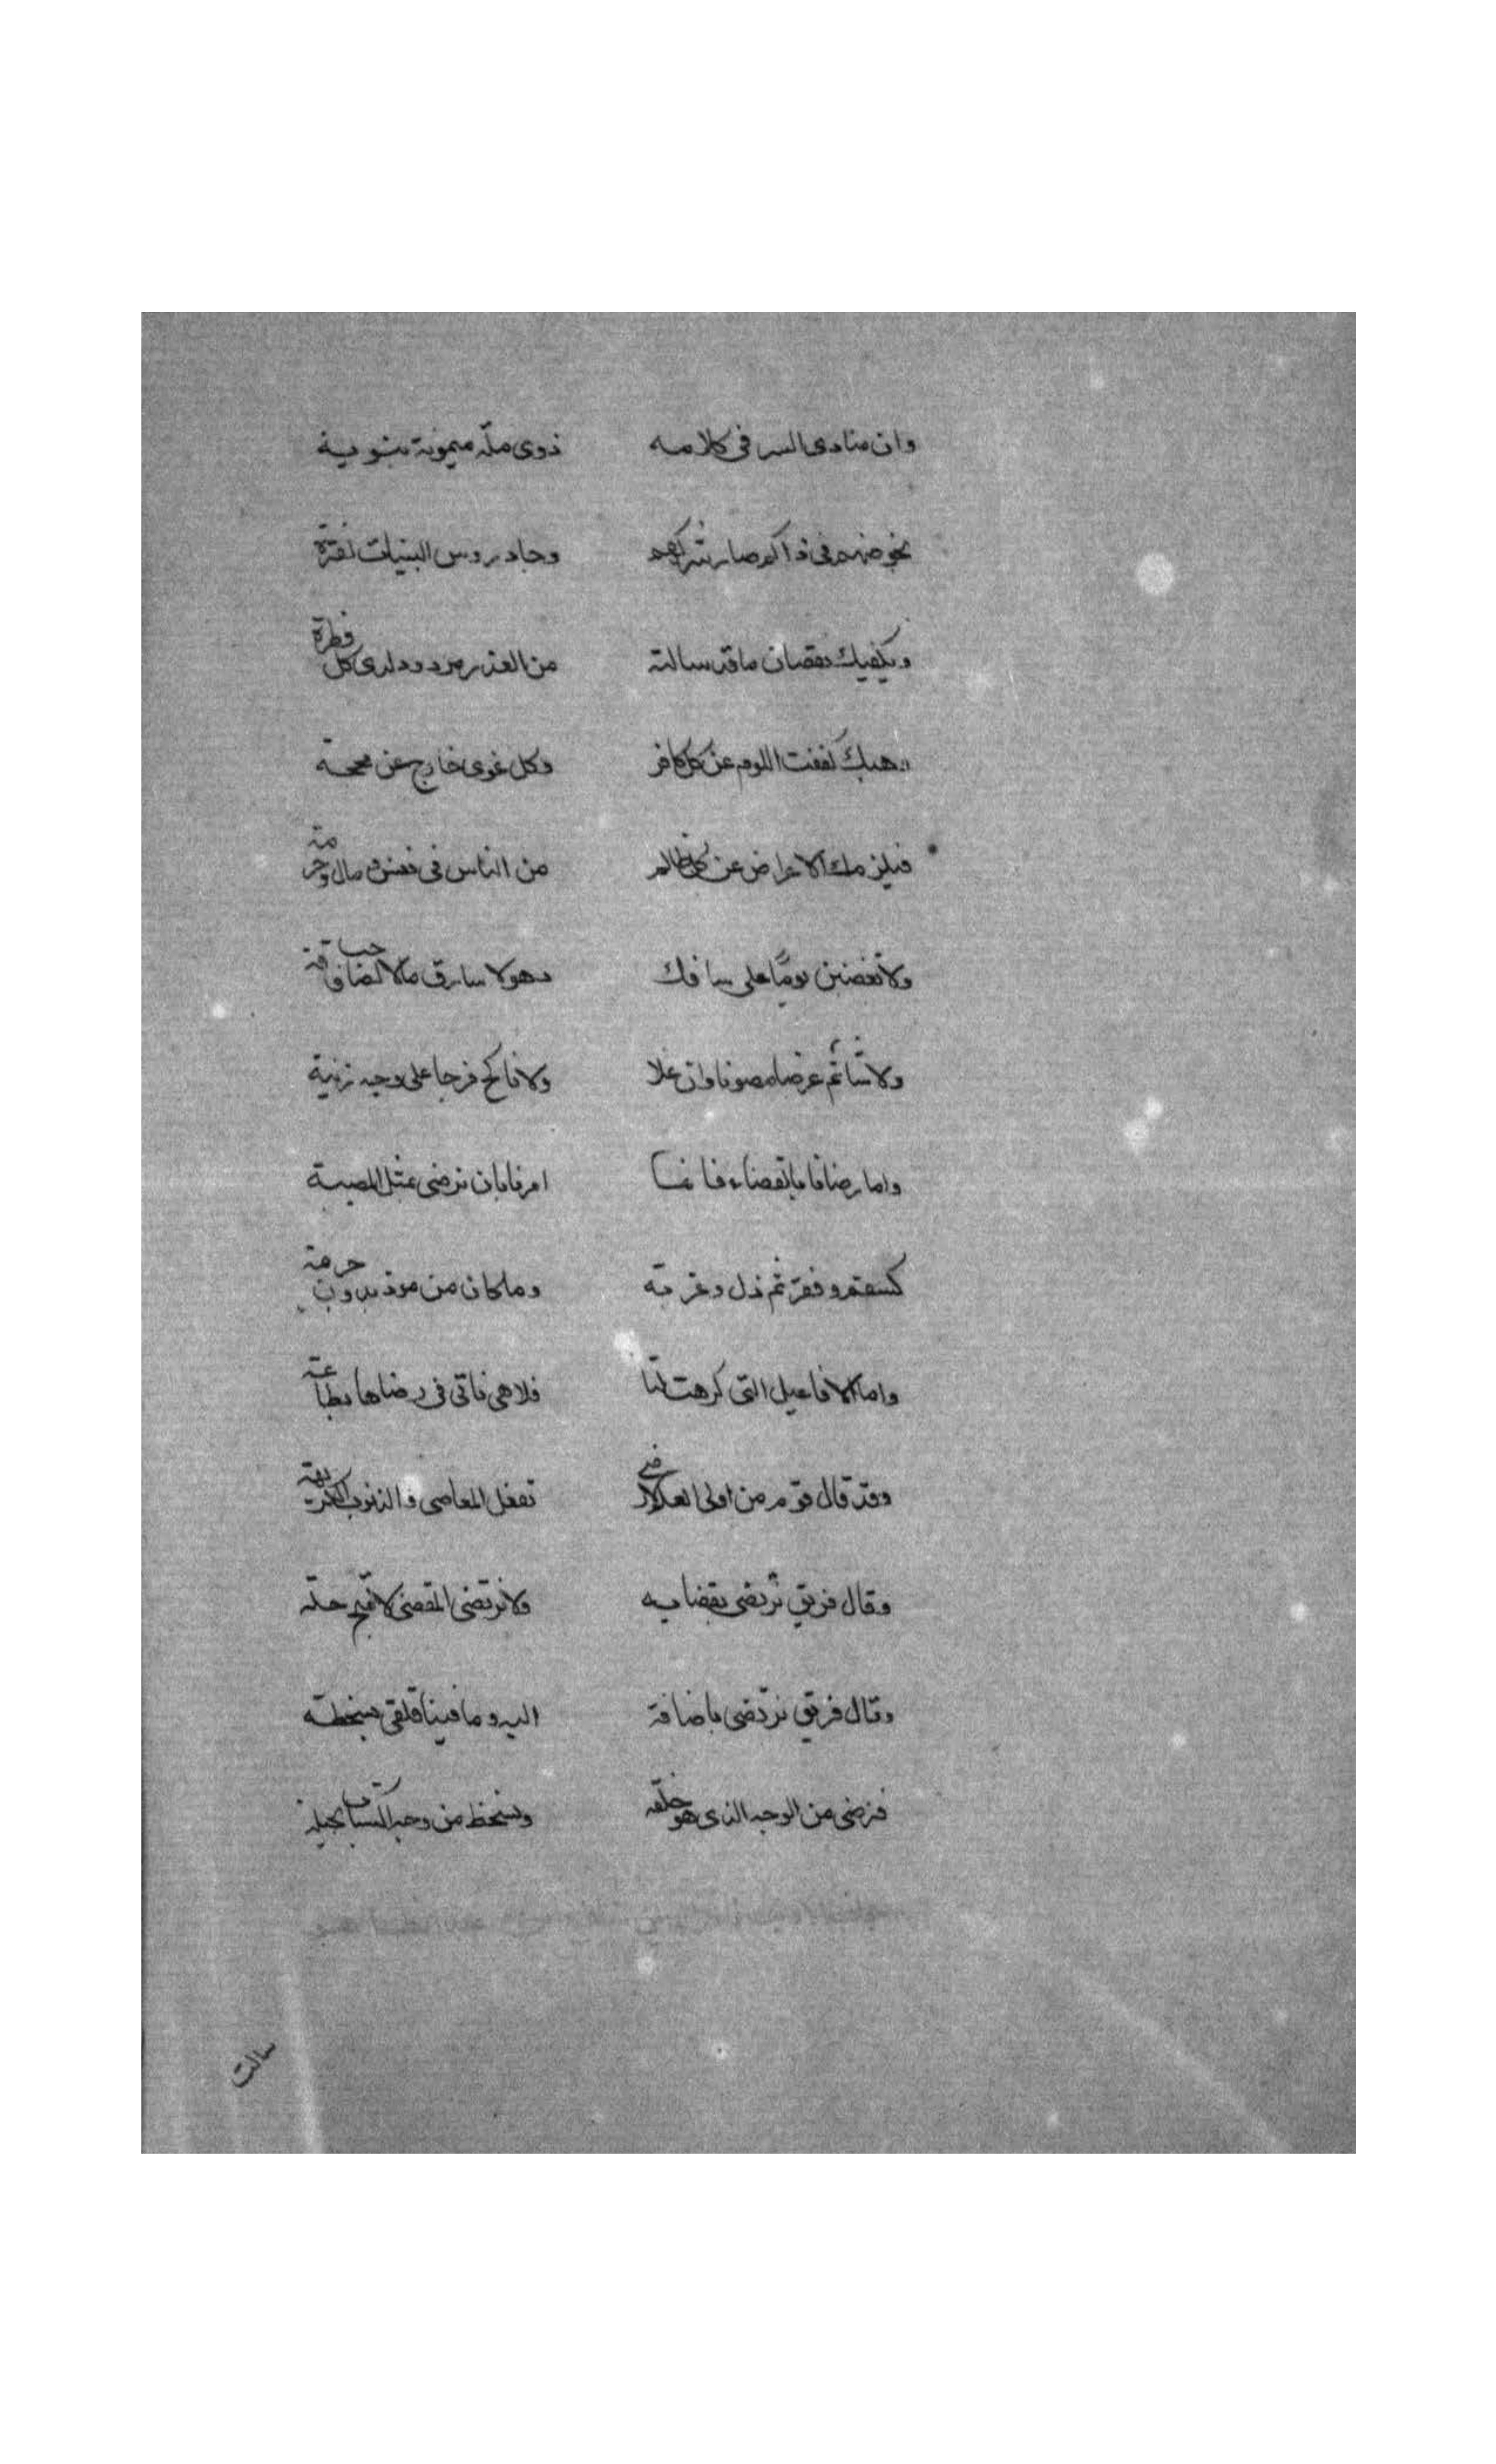 وان منادى السر فى كلامه ذوى ملة ميمونة نبوية
بخوضهم فى ذاكم صار شركهم وجاد روس البنيات لفترة
ويكفيك نقضان ما قد سالته من العذر مردود لدى كل فطرة
وهبك كففت اللوم عن كل كافر وكل غوى خارج عن محجة
فيلزمك الاعراض عن كل ظالم من الناس فى نفس ومال وحرمة
ولا تغضبن يوما على سافك دما ولا سارق مالا لصاحب فاقة
ولا شاتم عرضا مصونا وان علا ولا ناكح فرجا على وجه زنية
واما رضانا بالقضاء فانما امرنا بان نرضى بمثل المصيبة
كسقم وفقر ثم ذل وغربة وما كان من موذ بدون حرمة
واما الافاعيل التى كرهت لنا فلا هى تاتى فى رضاها بطاعة
وقد قال قوم من اولى العلم لا رضى بفعل المعاصى والذنوب الكريهة
وقال فريق نرتضى بقضايه ولا نرتضى المقضى لاقبح خلة
وقال فريق نرتضى باضافة اليه وما فينا فلقى بسخطة
فنرضى من الوجه الذى هو خلقه ونسخط من وجه اكتساب بحيلة
سالت